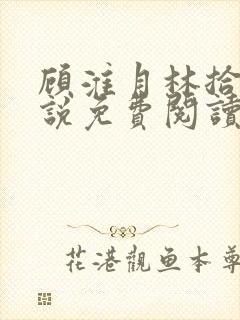 顾淮自林拾
説免費閱讀
花港觀鱼本尊